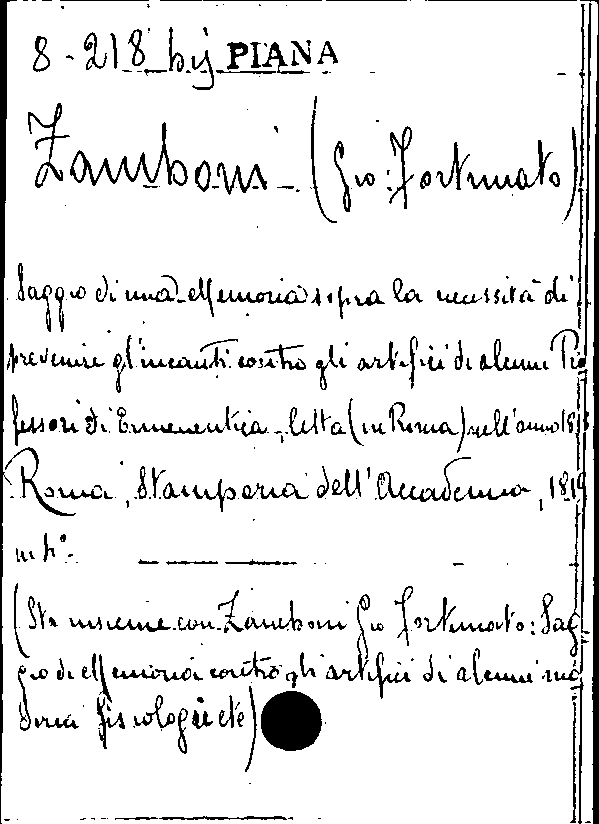 8-218 bij PIANA
Zamboni (Gio: Fortunato)
Saggio di una Memoria sopra la necessità di
prevenire gl'incauti contro gli artifici di alcuni Pro
fessori di Ermeneutica, letta (in Roma) nell'anno 181
Roma, Stamperia dell'Accademia, 1819
in 4°.
(Sta insieme con Zamboni Gio Fortunato: Sag
gio di Memoria contro gli artifici di alcuni mo
derni fisiologi ete)